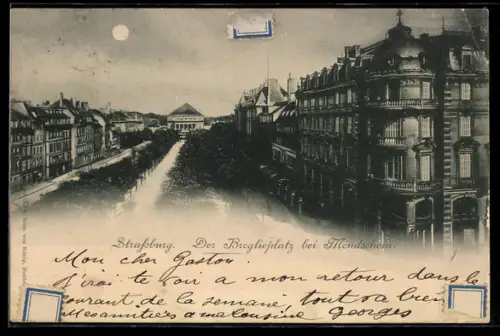 Straßburg. Der Broglieplatz bei Mondschein.
Mon cher Gaston
J'irai te voir a mon retour dans le
courant de la semaine, tout va bien
Mes amitiées a ma cousine Georges